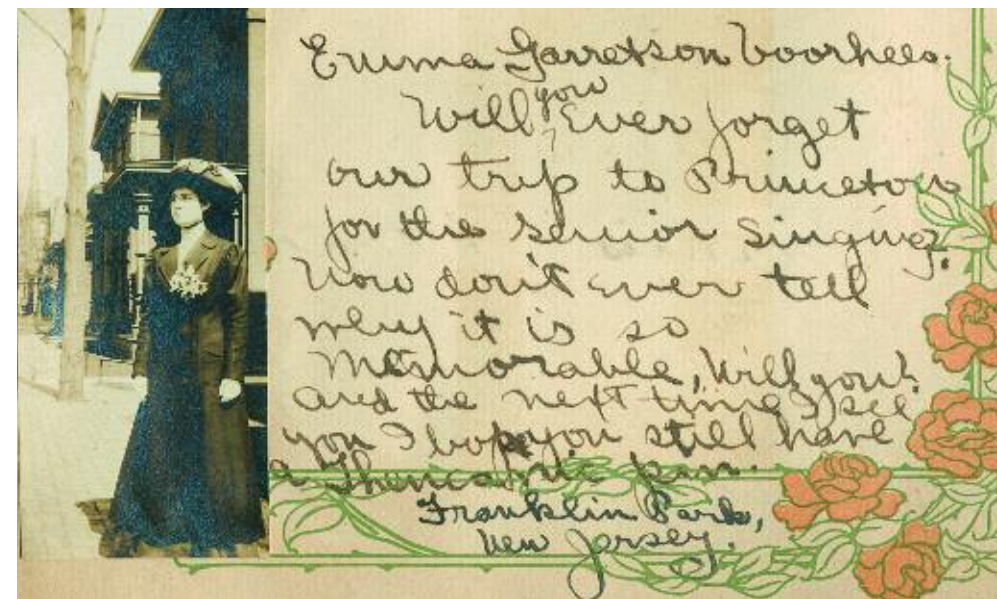 Emma Garretson Voorhees.
Will you ever forget
our trip to Princeton
for the senior singing.
Now don't ever tell
why it is so
memorable, will you?
and the next time I see
you I hope you still have
a pin.
Franklin Park,
New Jersey.